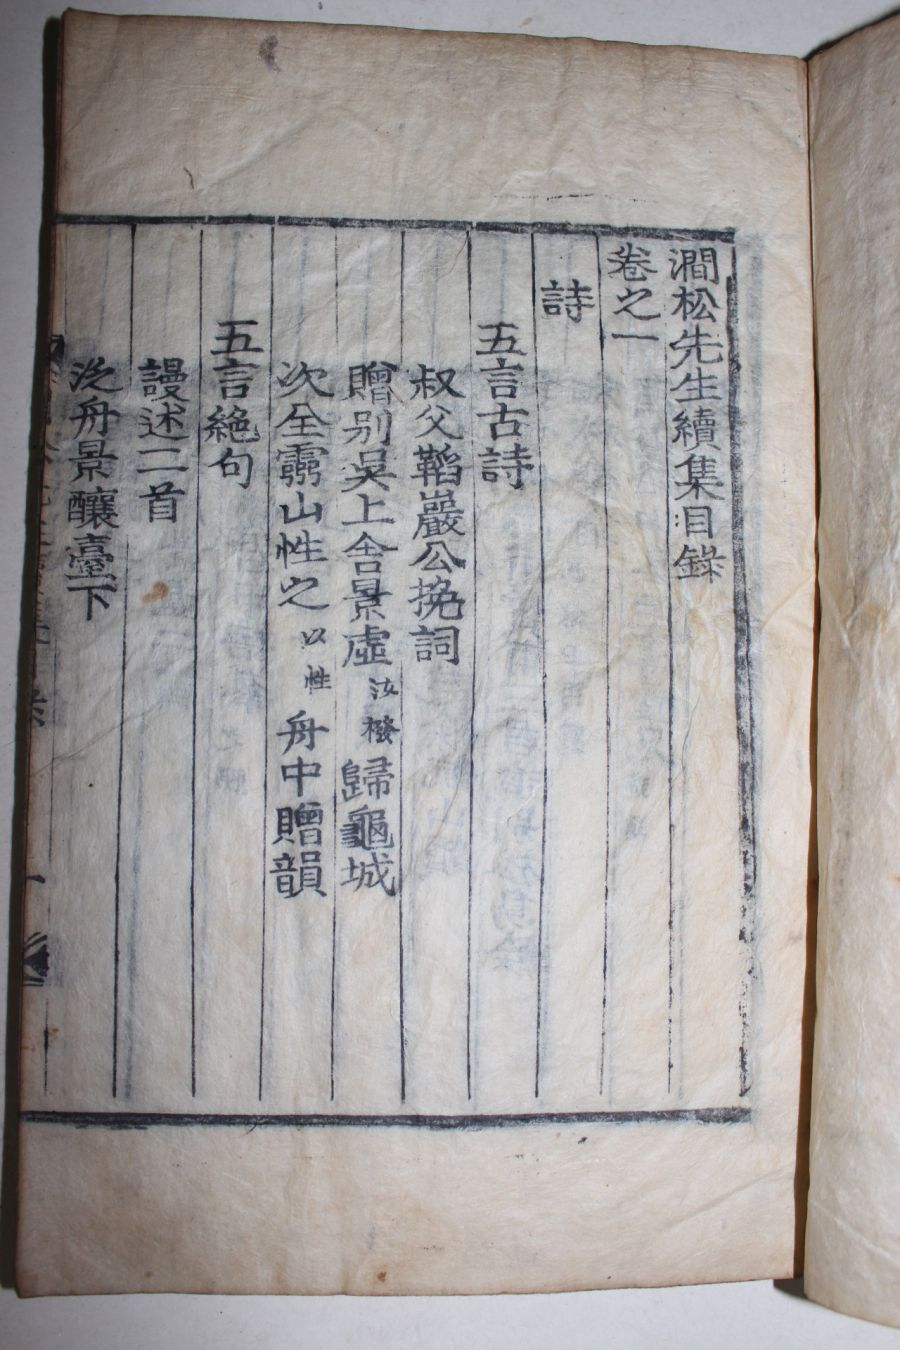 澗松先生續集目錄
卷之一
詩
五言古詩
叔父鞱巖公挽詞
贈别吳上舍景虛汝橃歸龜城
次全靈山性之以性舟中贈韻
五言絶句
謾述二首
泛舟景釀臺下